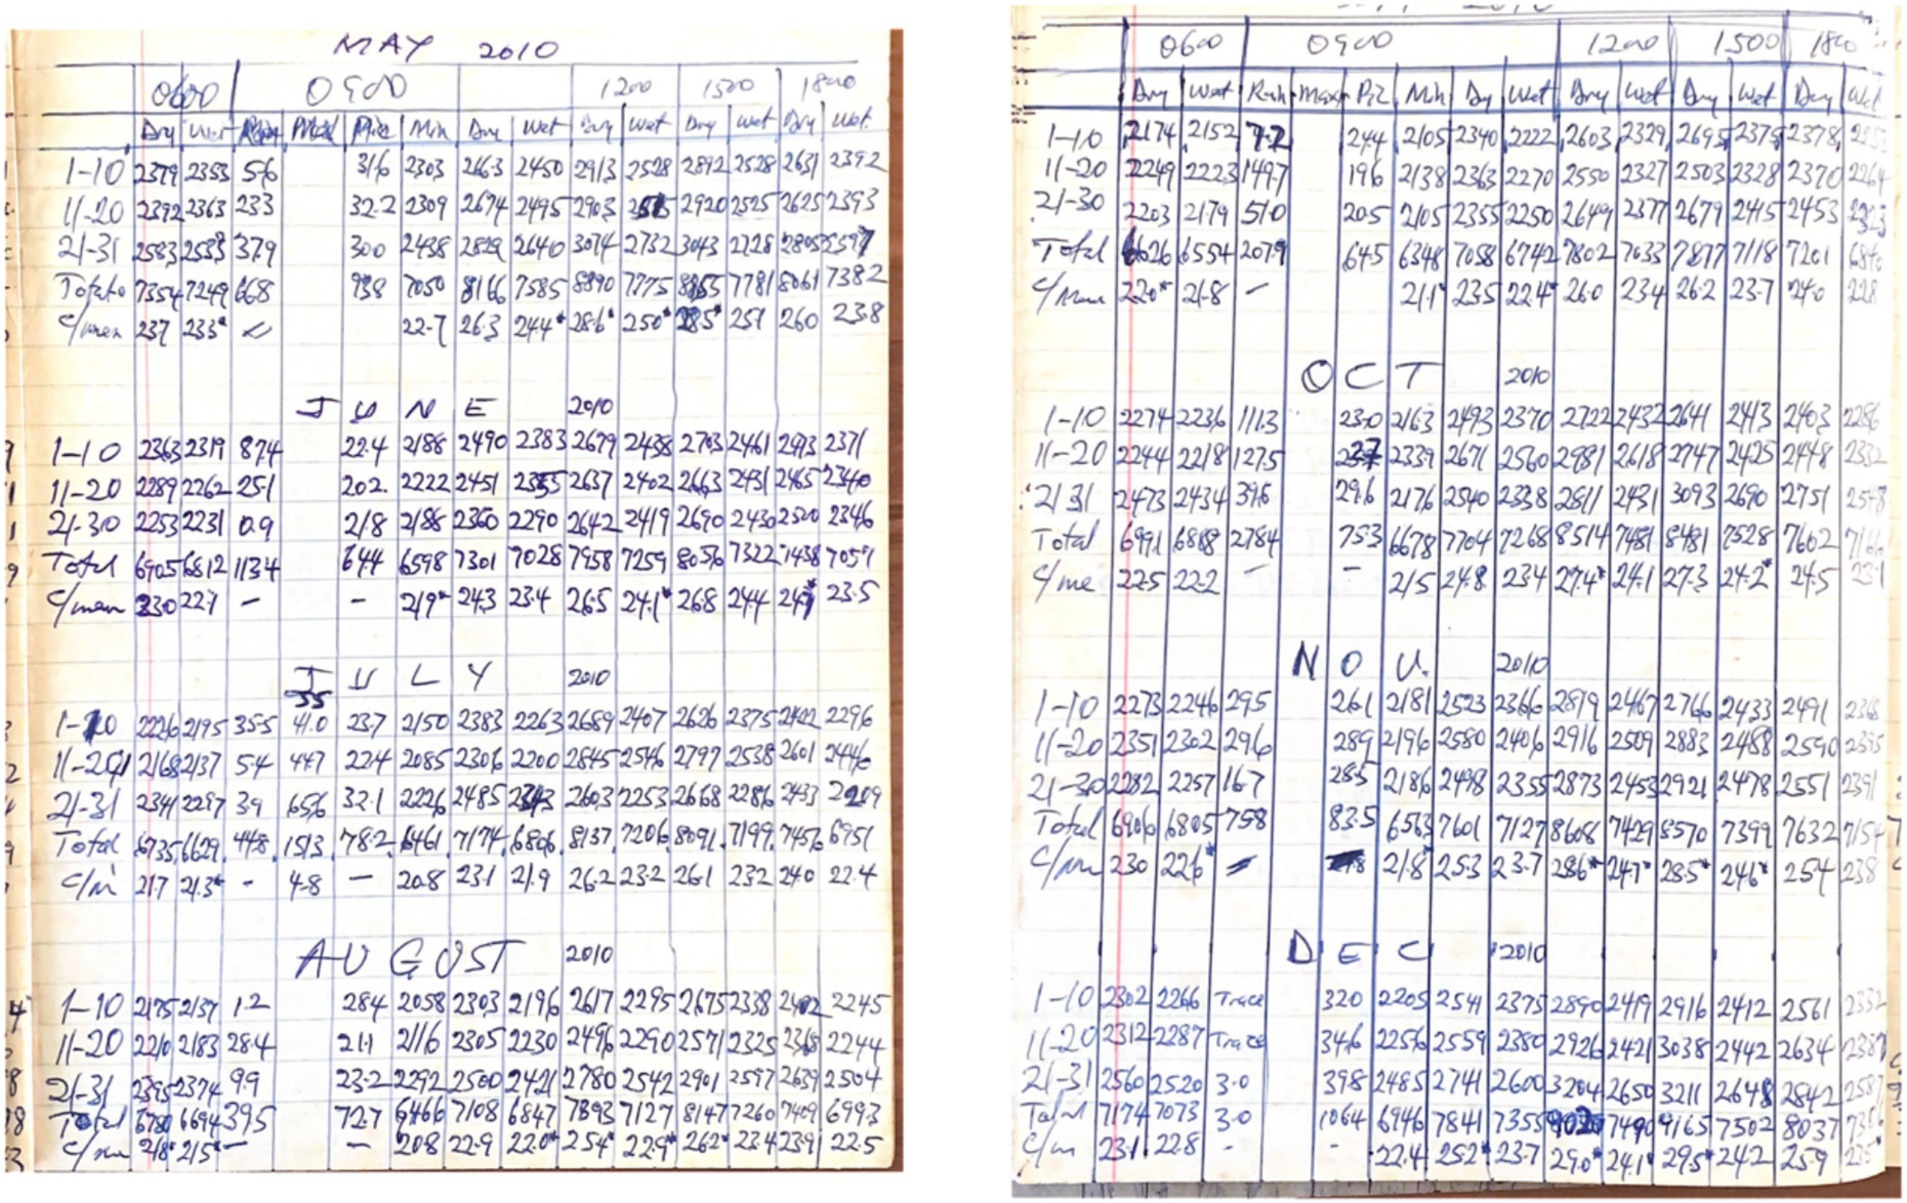 MAY 2010
0600 0900 1200 1500 1800
Dry Wet Rain Max Min Dry Wet Dry Wet Dry Wet Dry Wet
1-10 2379 2353 5.6 31.6 2303 2663 2450 2913 2528 2892 2528 2631 2392
11-20 2392 2363 233 32.2 2309 2674 2495 2903 2920 2525 2625 2393
21-31 2583 2533 37.9 300 2438 2829 2640 3074 2732 3043 2728 2805
7354 7249 668 938 7050 8166 7585 8890 7775 7781 8061 7382
C/mean 237 233* 22.7 26.3 244* 28.6* 250* 28.5* 251 260 23.8
JUNE 2010
1-10 2363 2319 87.4 22.4 2188 2490 2383 2679 2438 2703 2461 2371
11-20 2289 2262 25.1 202. 2222 2451 2355 2637 2402 2663 2431 2465 2340
21-30 2253 2231 0.9 21.8 2188 2360 2290 2642 2419 2690 2430 2500 2346
Total 6905 6812 1134 644 6598 7301 7028 7958 7259 8056 7322 7438 7057
C/mean 23.0 22.7 - - 21.9* 24.3 23.4 26.5 24.1* 26.8 24.4 23.5
JULY 2010
2226 2195 35.5 41.0 23.7 2150 2383 2263 2689 2407 2626 2375 2422 2296
11-20 2168 2137 5.4 44.7 22.4 2085 2306 2200 2845 2546 2797 2538 2601 2446
21-31 2341 2297 3.9 65.6 32.1 2226 2485 2343 2603 2253 2668 2286 2433 2209
Total 6735 6629 44.8 1513 78.2 6461 7174 6806 8137 7206 8091 7199 7456 6951
C/m 21.7 21.3* - 4.8 - 20.8 23.1 21.9 26.2 23.2 26.1 232 24.0 22.4
AUGUST 2010
1-10 2175 2137 1.2 28.4 2058 2303 2196 2617 2295 2675 2338 2402 2245
11-20 2210 2183 28.4 21.1 2116 2305 2230 2496 2290 2571 2325 2368 2244
21-31 2395 2374 9.9 23.2 2292 2500 2421 2780 2542 2901 2597 2639 2504
Total 6780 6694 39.5 72.7 6466 7108 6847 7893 7127 8147 7260 7409 6993
218* 215* - - 208 22.9 22.0* 25.4* 22.9* 26.2* 23.4 23.9 22.5
0600 0900 1200 1500 1800
Dry Wet Rain Max Piz Min Dry Wet Dry Wet Dry Wet Dry Wet
1-10 2174 2152 7.2 244 2105 2340 2222 2603 2329 2695 2375 2378
11-20 2249 2223 149.7 19.6 2138 2363 2270 2550 2327 2503 2328 2370 2264
21-30 2203 2179 51.0 20.5 2105 2355 2250 2649 2377 2679 2415 2453
Total 6626 6554 207.9 64.5 6348 7058 6742 7802 7033 7877 7118 7201
C/mean 22.0* 21.8 - 21.1* 23.5 22.4* 26.0 23.4 26.2 23.7 24.0 228
OCT 2010
1-10 2274 2236 111.3 23.0 2163 2493 2370 2722 2432 2641 2413 2403 2286
11-20 2244 2218 127.5 2339 2671 2560 2981 2618 2747 2425 2448 2332
21 31 2473 2434 39.6 29.6 2176 2540 2338 2811 2431 3093 2690 2751
Total 6991 6888 2784 753 6678 7704 7268 8514 7481 8481 7528 7602
C/me 22.5 22.2 - - 21.5 24.8 23.4 27.4* 24.1 27.3 24.2* 24.5 23.1
NOV. 2010
1-10 2273 2246 29.5 26.1 2181 2523 2366 2819 2467 2766 2433 2491
11-20 2351 2302 29.6 28.9 2196 2580 2406 2916 2509 2883 2488 2590 2395
21-30 2282 2257 16.7 28.5 2186 2498 2355 2873 2453 2921 2478 2551 2391
Total 6906 6805 758 83.5 6563 7601 7127 8608 7429 8570 7399 7632 7154
230 226* 21.8* 25.3 23.7 286* 24.7* 28.5* 246* 254 238
DEC 2010
1-10 2302 2266 Trace 320 2205 2541 2375 2890 2419 2916 2412 2561 2332
11-20 2312 2287 Trace 34.6 2256 2559 2380 2926 2421 3038 2442 2634 2387
21-31 2560 2520 3.0 39.8 2485 2741 2600 3204 2650 3211 2648 2842 2587
Total 7174 7073 3.0 1064 6946 7841 7355 9020 7490 9165 7502 8037
C/m 23.1 22.8 - - 22.4 25.2* 23.7 29.0* 24.1* 29.5* 242 25.9